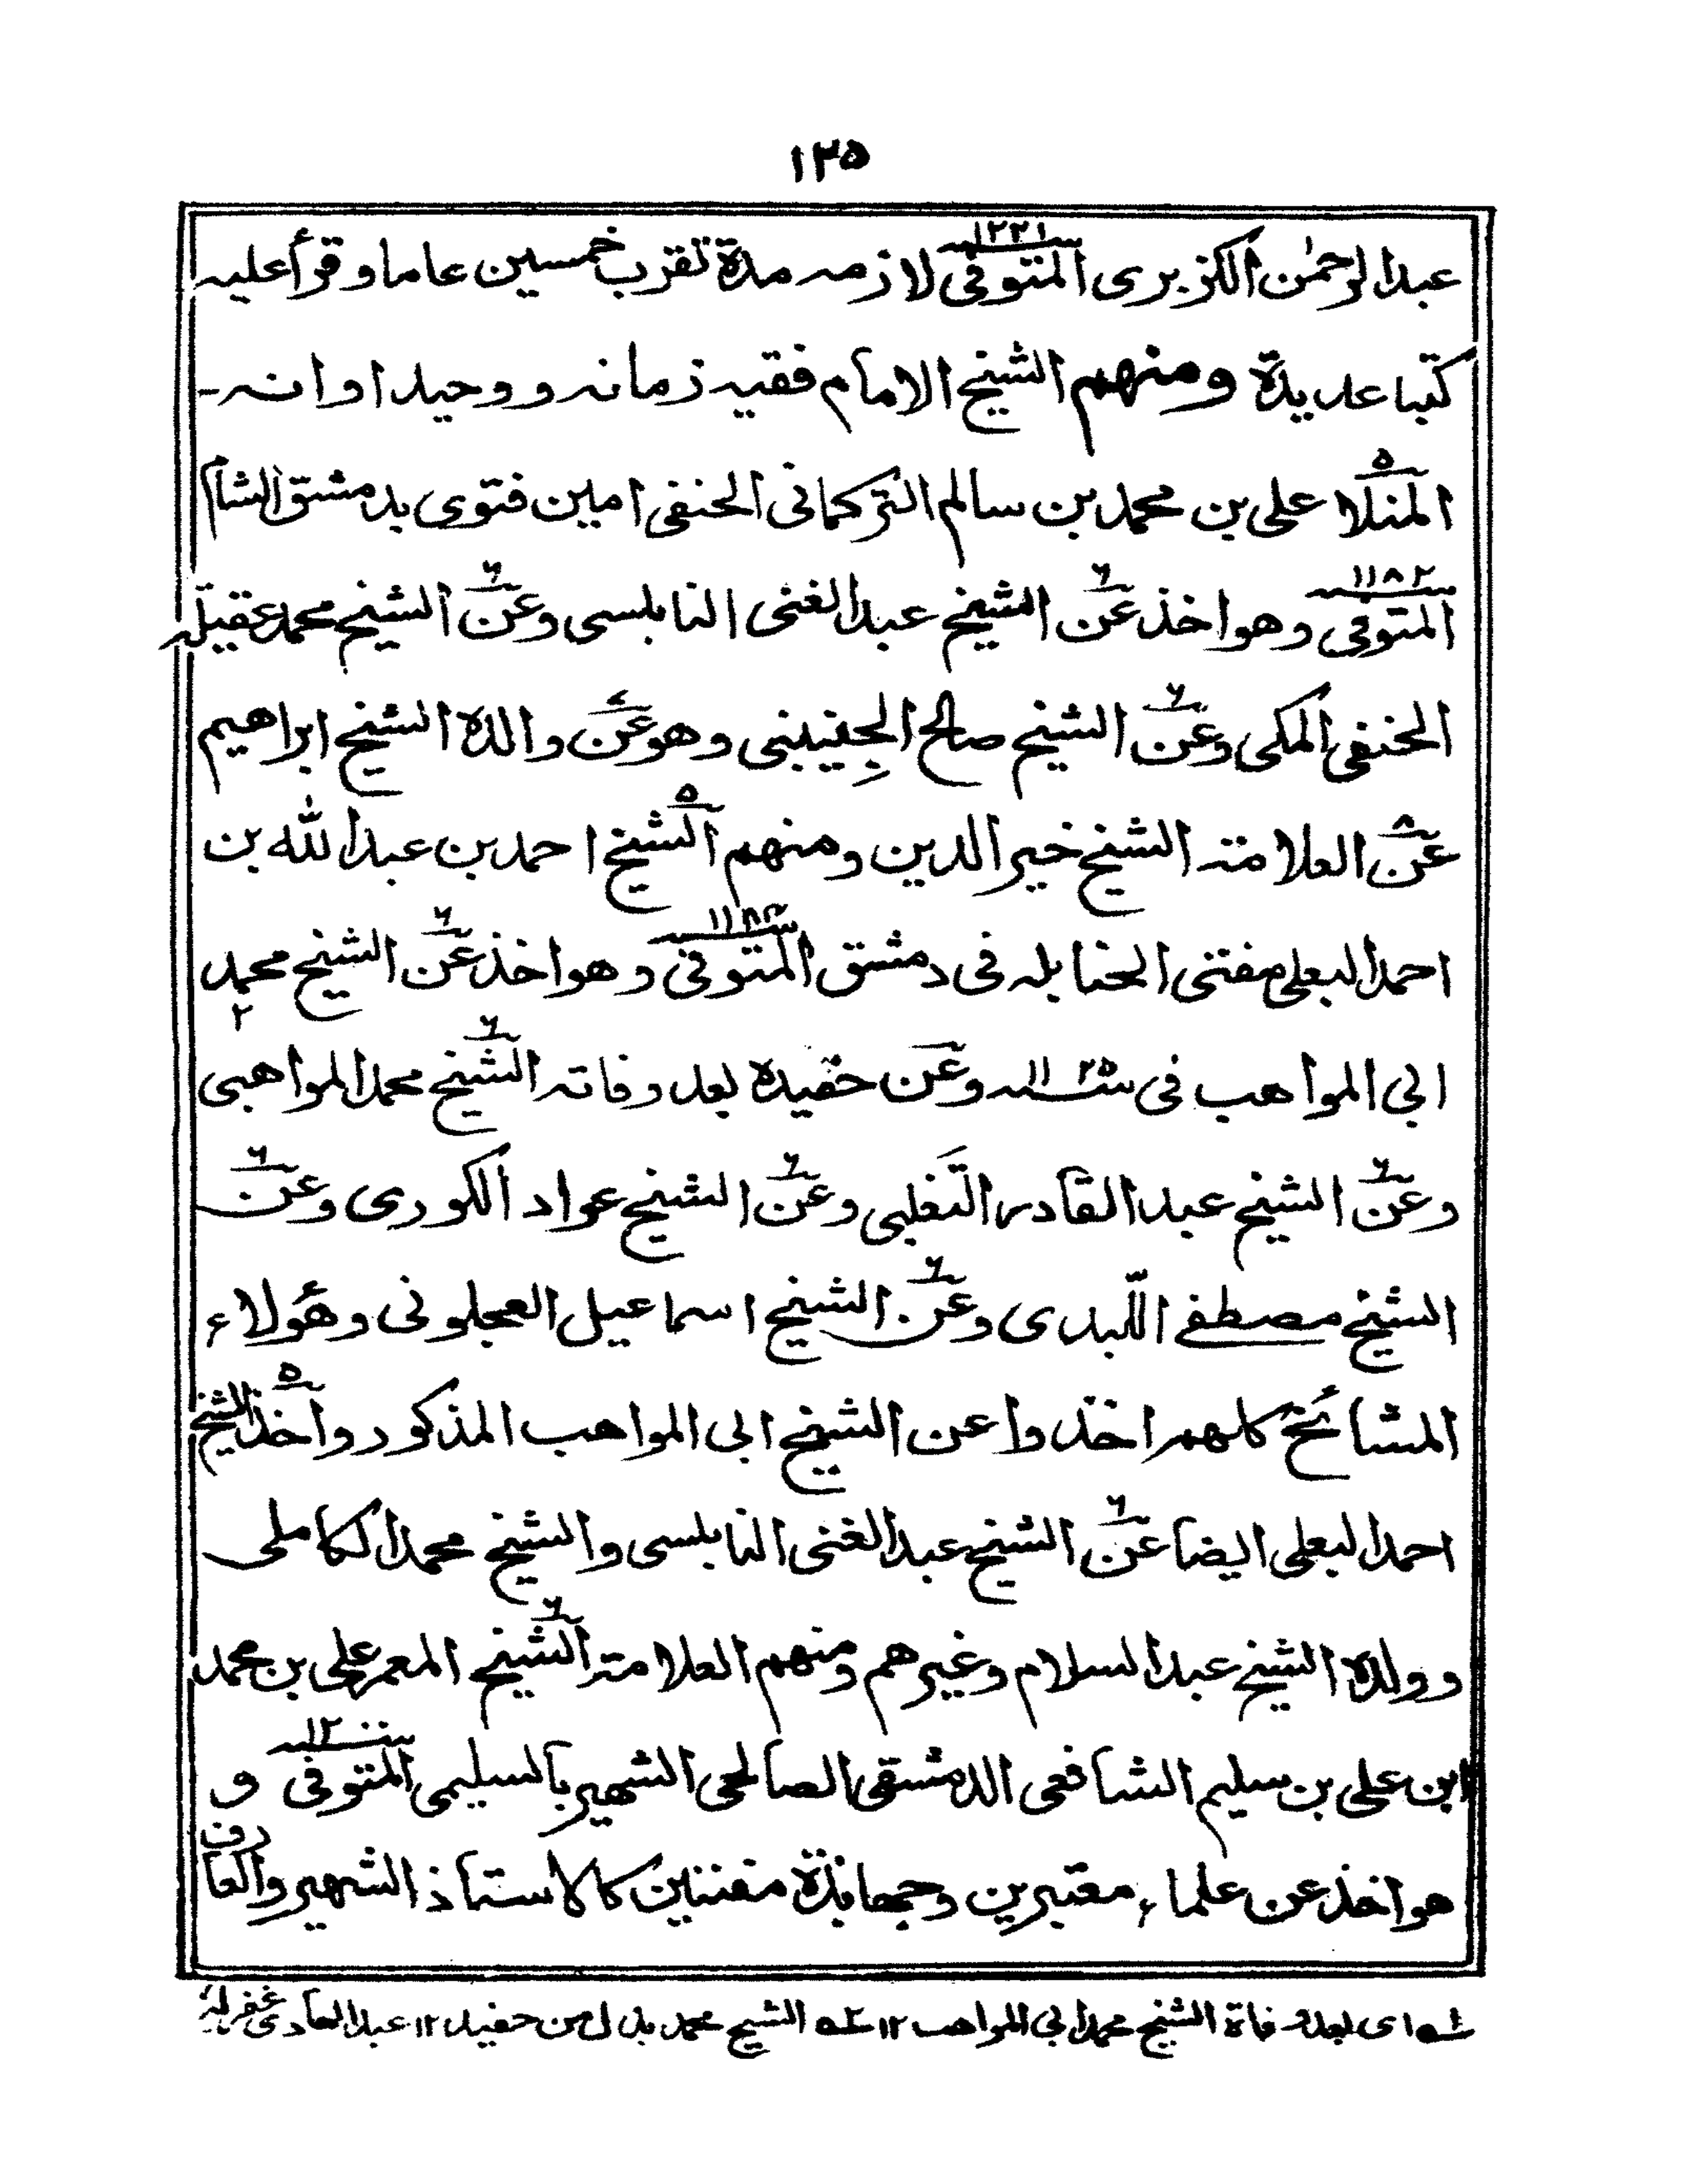 ١٢٥
عبدالرحمٰن الكزبرى المتوفى ١٢٢١ لازمه مدة تقرب خمسين عاما وقرأ عليه
كتبا عديدة ومنهم الشيخ الامام فقيه زمانه ووحيد اوانه-
المنلا ٥ على بن محمد بن سالم التركمانى الحنفى امين فتوى بدمشق الشام
المتوفى ١١٨٢ وهو اخذ عن ٦ الشيخ عبدالغنى النابلسى وعن ٦ الشيخ محمد عقيله
الحنفى المكى وعن ٦ الشيخ صالح الجِنينى وهو عن والده الشيخ ابراهيم
عن ٨ العلامته الشيخ خير الدين ومنهم الشيخ ٥ احمد بن عبد الله بن
احمد البعلى مفتى الحنابله فى دمشق المتوفى وهو اخذ عن ٦ الشيخ محمد
ابى المواهب فى ١١٢٥ وعن حفيده بعد وفاته الشيخ ٢ ٦ محمد المواهبى
وعن ٦ الشيخ عبد القادر التَغلبى وعن ٦ الشيخ عواد الكورى وعن ٦
الشيخ مصطفے اللّبدى وعن ٦ الشيخ اسماعيل العجلونى وهؤلاء
المشائخ كلهم اخذوا عن الشيخ ابى المواهب المذكور واخذ ٥ الشيخ
احمد البعلى ايضا عن ٦ الشيخ عبد الغنى النابلسى والشيخ محمد الكاملى
وولده الشيخ عبد السلام وغيرهم ومنهم العلامته الشيخ ٦ المعمر على بن محمد
ابن على بن سليم الشافعى الدمشقى الصالحى الشهير بالسليمى المتوفى و
هو اخذ عن علماء معتبرين وجهابذة مفننين كالاستاذ الشهير والعارف
١ اى بعد وفاة الشيخ محمد ابي المواهب ١٢ ٢ الشيخ محمد بدل من حفيد ١٢ عبد الهادى غفرله